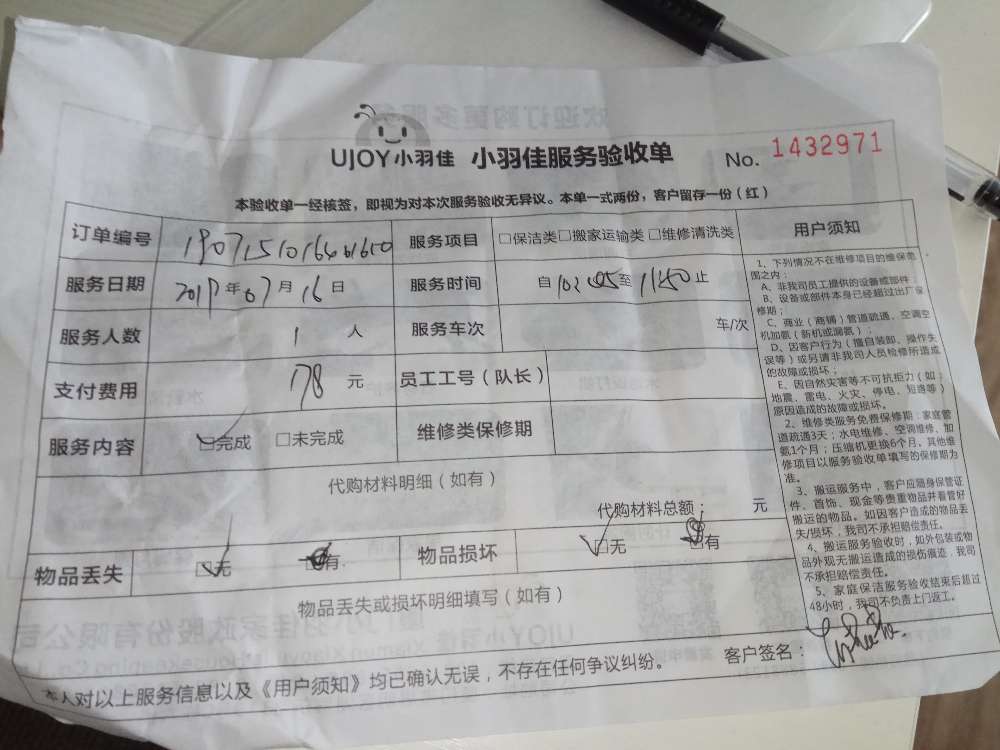 UJOY小羽佳 小羽佳服务验收单 No. 1432971
本验收单一经核签，即视为对本次服务验收无异议。本单一式两份，客户留存一份（红）
订单编号 服务项目 □保洁类□搬家运输类□维修清洗类
服务日期 2019年07月16日 服务时间 自 至 1140止
服务人数 1 人 服务车次 车/次
支付费用 178 元 员工工号（队长）
服务内容 □完成 □未完成 维修类保修期
代购材料明细（如有）
代购材料总额： 元
物品丢失 □无 □有 物品损坏 □无 □有
物品丢失或损坏明细填写（如有）
客户签名：
本人对以上服务信息以及《用户须知》均已确认无误，不存在任何争议纠纷。
用户须知
1、下列情况不在维修项目的维保范
围之内：
A、非我司员工提供的设备或部件；
B、设备或部件本身已经超过出厂保
修期；
C、商业（商铺）管道疏通、空调空
机加氨（新机或漏氨）；
D、因客户行为（擅自装卸、操作失
误等）或另请非我司人员检修所造成
的故障或损坏；
E、因自然灾害等不可抗拒力（如：
地震、雷电、火灾、停电、短道等）
原因造成的故障或损坏。
2、维修类服务免费保修期：家庭管
道疏通3天；水电维修、空调维修、加
氨1个月；压缩机更换6个月，其他维
修项目以服务验收单填写的保修期为
准。
3、搬运服务中，客户应随身保管证
件、首饰、现金等贵重物品并看管好
搬运的物品。如因客户造成的物品丢
失/损坏，我司不承担赔偿责任。
4、搬运服务验收时，如外包装或物
品外观无搬运造成的损伤痕迹，我司
不承担赔偿责任。
5、家庭保洁服务验收结束后超过
48小时，我司不负责上门返工。